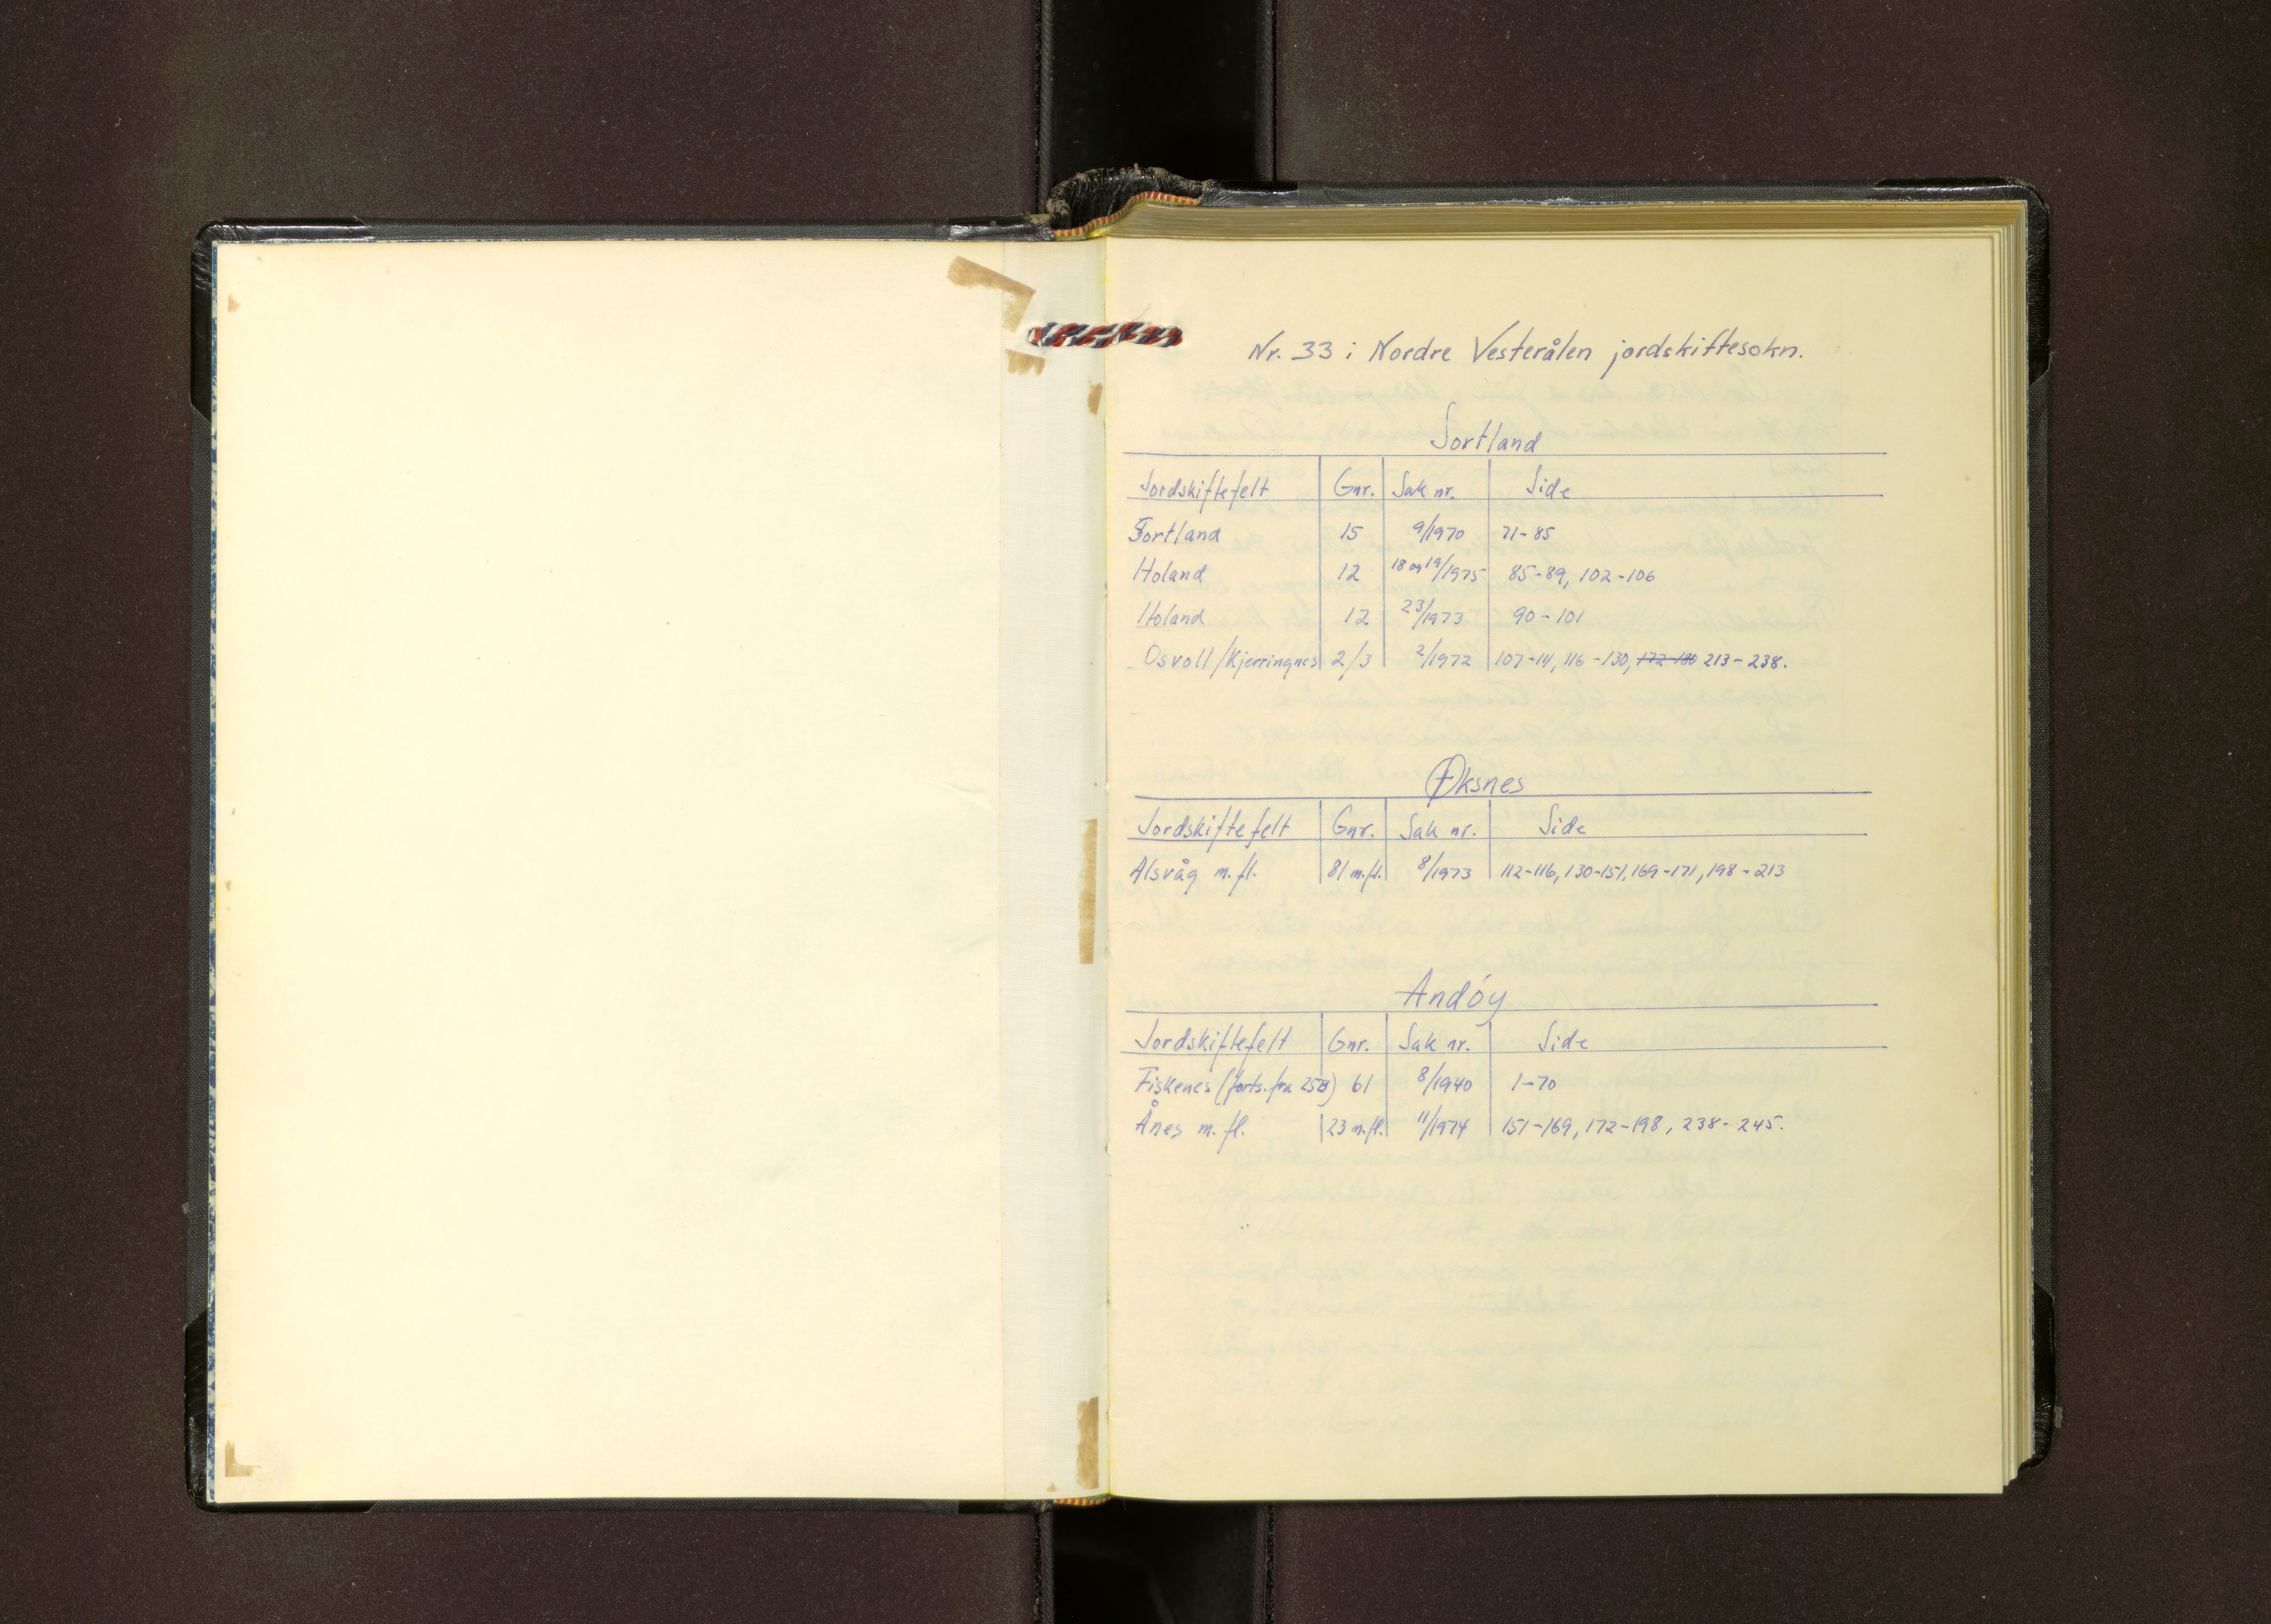 Nr. 33 i Nordre Vesterålen jordskiftesokn.
Sortland
Jordskiftefelt Gnr. Sak nr. Side
Sortland 15 9/1970 71-85
Holand 12 18 og 19/1975 85-89, 102-106
Holand 12 23/1973 90-101
Osvoll/Kjerringnes 2/3 2/1972 107-111, 116-130, 172-180 213-238.
Øksnes
Jordskiftefelt Gnr. Sak nr. Side
Alsvåg m.fl. 81 m.fl. 8/1973 112-116, 130-151, 169-171, 198-213
Andóy
Jordskiftefelt Gnr. Sak nr. Side
Fiskenes (forts. fra 25B) 61 8/1940 1-70
Ånes m.fl. 23 m.fl. 11/1974 151-169, 172-198, 238-245.